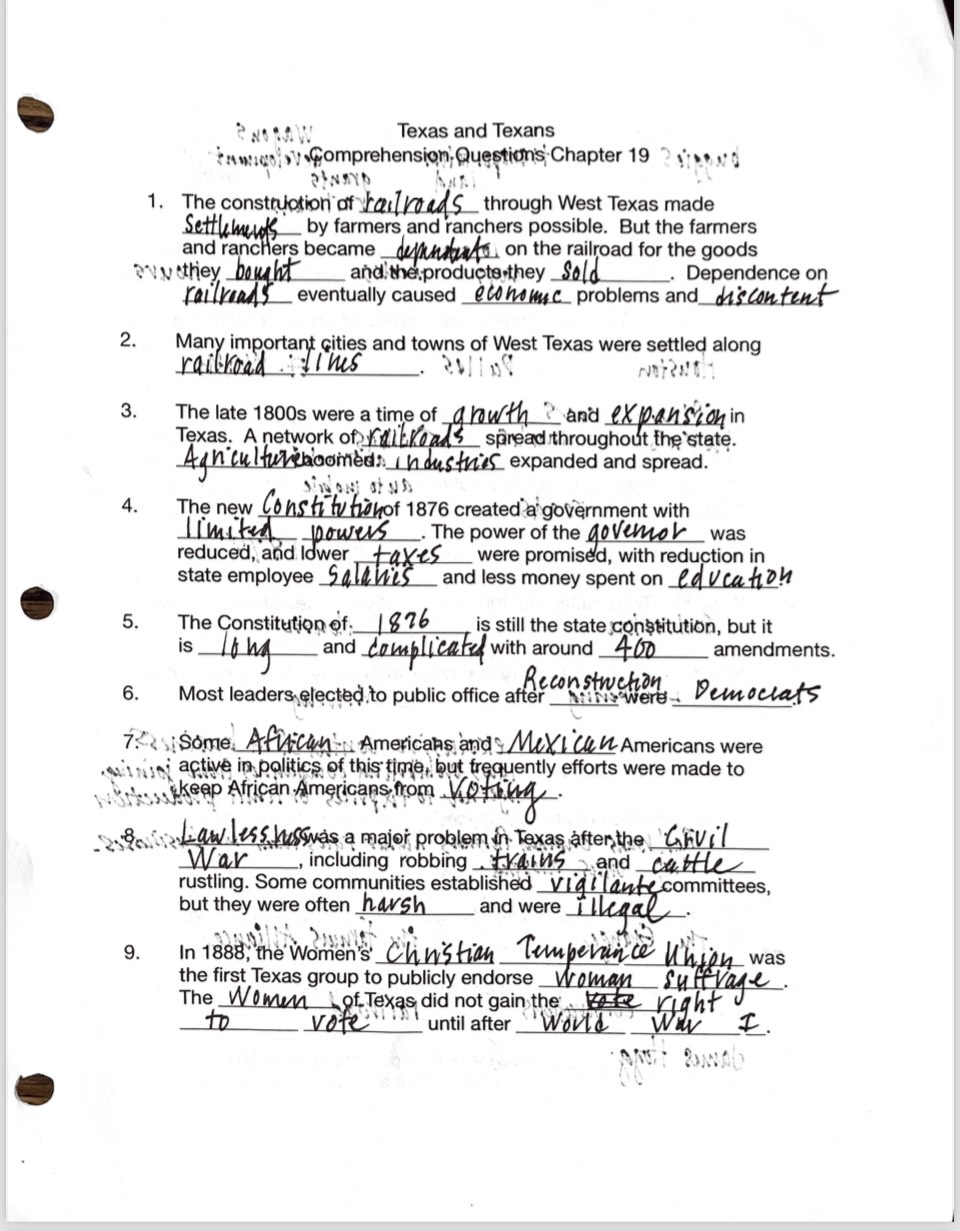 Texas and Texans
Comprehension Questions Chapter 19
1. The construction of railroads through West Texas made
Settlements by farmers and ranchers possible. But the farmers
and ranchers became dependents on the railroad for the goods
they bought and the products they Sold. Dependence on
railroads eventually caused economic problems and discontent
2. Many important cities and towns of West Texas were settled along
railroad lines.
3. The late 1800s were a time of growth and expansion in
Texas. A network of railroads spread throughout the state.
Agriculture boomed. industries expanded and spread.
4. The new Constitution of 1876 created a government with
limited powers. The power of the governor was
reduced, and lower taxes were promised, with reduction in
state employee Salaries and less money spent on education
5. The Constitution of 1876 is still the state constitution, but it
is long and complicated with around 400 amendments.
6. Most leaders elected to public office after Reconstruction were Democrats
7. Some African Americans and Mexican Americans were
active in politics of this time, but frequently efforts were made to
keep African Americans from Voting.
8. Lawlessness was a major problem in Texas after the Civil
War, including robbing trains and cattle
rustling. Some communities established vigilante committees,
but they were often harsh and were illegal.
9. In 1888, the Women's Christian Temperance Union was
the first Texas group to publicly endorse Woman Suffrage.
The Women of Texas did not gain the vote right
to vote until after World War I.